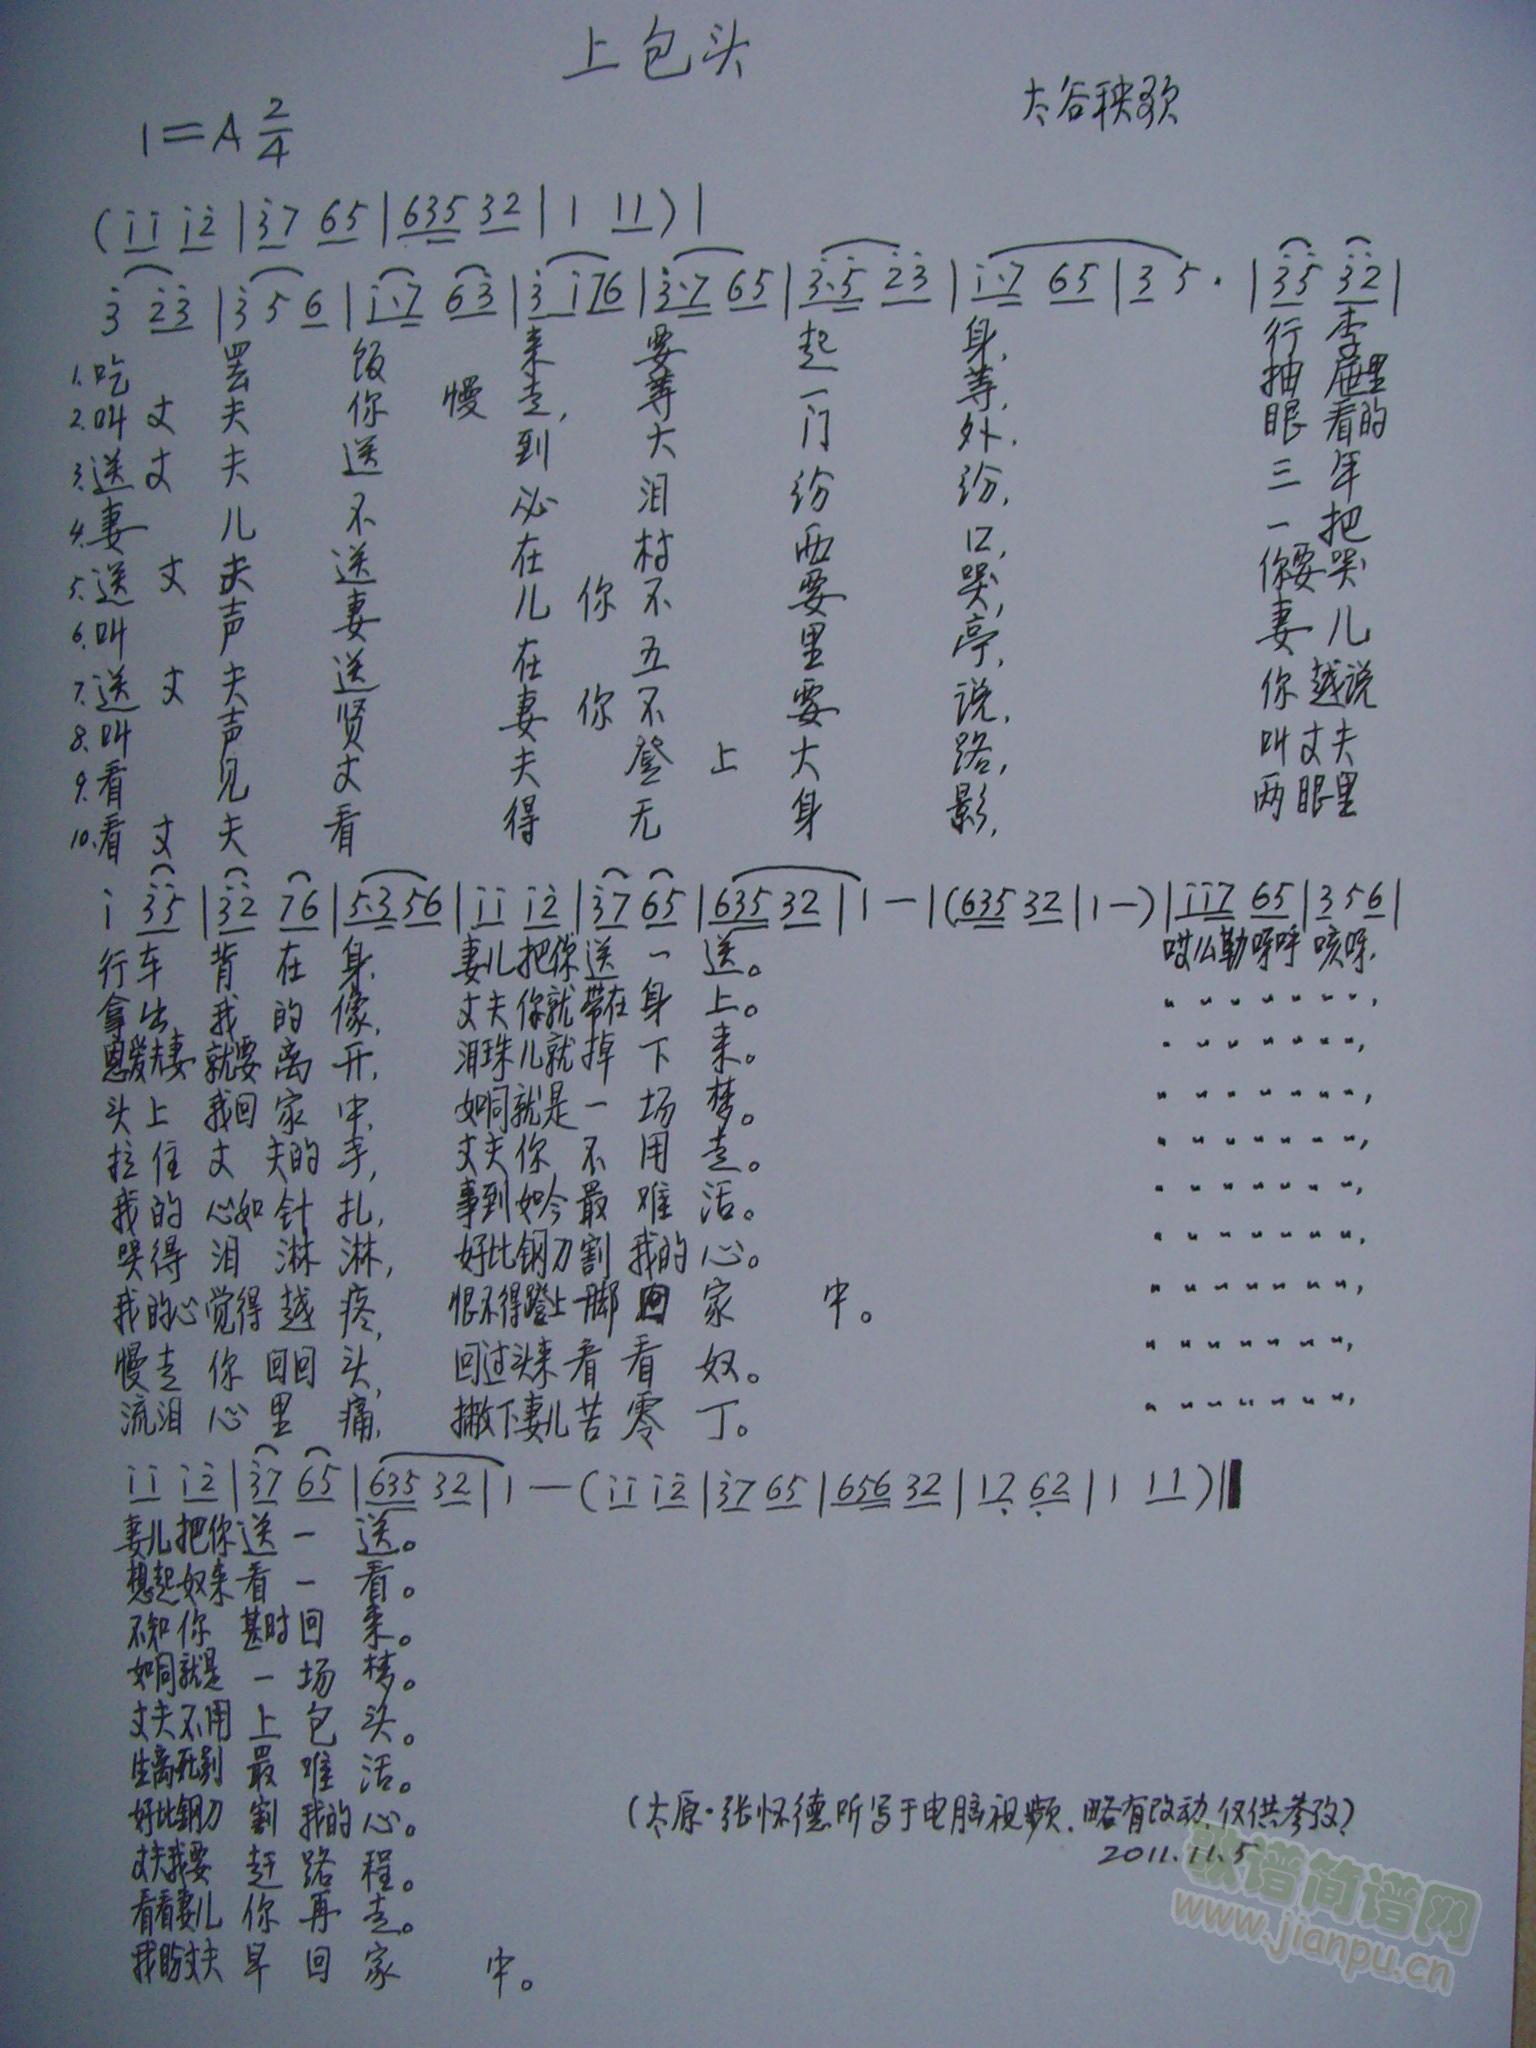 上包头
太谷秧歌
1=A 2/4
(i̇i̇ i̇2̇|3̇7 65|635 32|1 11)|
3̇ 2̇3̇|3̇ 5 6|i̇·7 63̇|3̇ i̇76|3̇·7 65|3̇·5̇ 2̇3̇|i̇·7 65|3 5·|3̇5̇ 3̇2̇|
1.吃 罢 饭 来 要 起 身, 行 李
2.叫 丈 夫 你 慢 走, 等 一 等, 抽 屉里
3.送 丈 夫 送 到 大 门 外. 眼 看的
4.妻 儿 不 必 泪 纷 纷, 三 年
5.送 丈 夫 送 在 村 西 口, 一 把
6.叫 声 妻 儿 你 不 要 哭, 你要 哭
7.送 丈 夫 送 在 五 里 亭, 妻 儿
8.叫 声 贤 妻 你 不 要 说, 你 越说
9.看 见 丈 夫 登 上 大 路, 叫 丈夫
10.看 丈 夫 看 得 无 身 影, 两 眼里
i̇ 3̇5̇|3̇2̇ 76|5·3 56|i̇i̇ i̇2̇|3̇7 65|635 32|1 —|(635 32|1 —)|i̇i̇7 65|3 56|
行车 背 在 身, 妻儿把你送 一 送。 哎么勒呀呼 咳呀,
拿出 我 的 像, 丈夫 你就 带在 身 上。 〃 〃 〃 〃 〃 〃 〃,
恩爱夫妻 就要 离 开, 泪珠儿就 掉 下 来。 〃 〃 〃 〃 〃 〃 〃,
头上 我回 家 中, 如同就是 一 场 梦。 〃 〃 〃 〃 〃 〃 〃,
拉住 丈 夫的 手, 丈夫 你 不 用 走。 〃 〃 〃 〃 〃 〃 〃,
我的 心如 针 扎, 事到如今 最 难 活。 〃 〃 〃 〃 〃 〃 〃,
哭得 泪 淋 淋, 好比钢刀割 我的 心。 〃 〃 〃 〃 〃 〃 〃,
我的心 觉得 越 疼, 恨不得蹬上一脚 回 家 中。 〃 〃 〃 〃 〃 〃 〃,
慢走 你 回回 头, 回过头来 看 看 奴。 〃 〃 〃 〃 〃 〃 〃,
流泪 心 里 痛, 撇下妻儿 苦 零 丁。 〃 〃 〃 〃 〃 〃 〃,
i̇i̇ i̇2̇|3̇7 65|635 32|1 —(i̇i̇ i̇2̇|3̇7 65|656 32|17̣ 6̣2|1 11)‖
妻儿把你送 一 送。
想起奴来看 一 看。
不知你 甚时 回 来。
如同就是 一 场 梦。
丈夫不用 上 包 头。
生离死别 最 难 活。
好比钢刀 割 我的 心。
丈夫我要 赶 路 程。
看看妻儿 你 再 走。
我盼丈夫 早 回 家 中。
(太原·张怀德听写于电脑视频.略有改动,仅供参考)
2011.11.5
歌谱简谱网
www.jianpu.cn